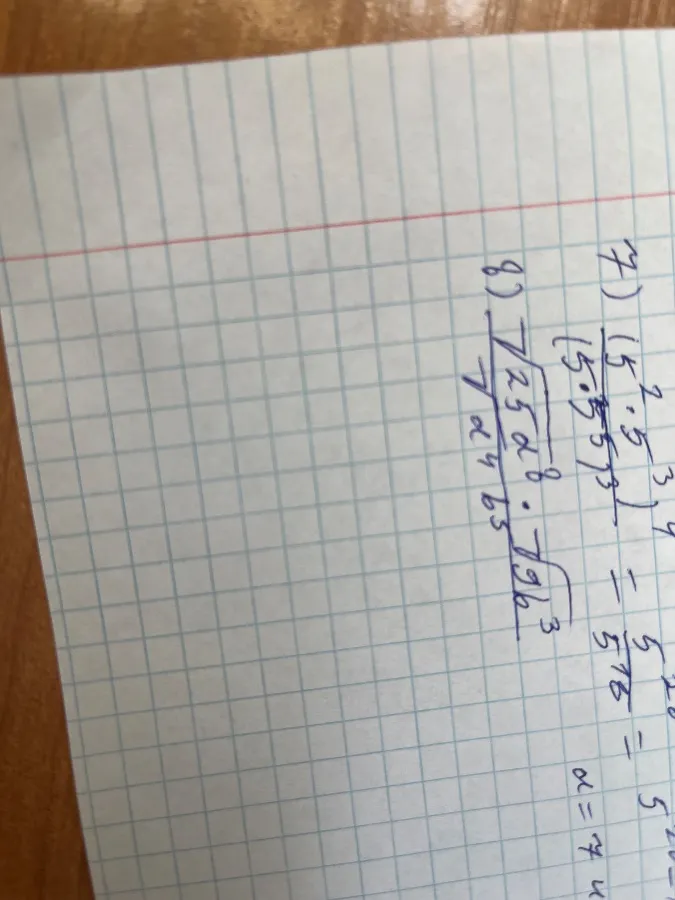 7) (5² · 5³)⁴ / (5 · 5⁵)³ = 5²⁰ / 5¹⁸ = 5
8) √25a⁸ · √9b³ / √a⁴b⁵ a = 7 и